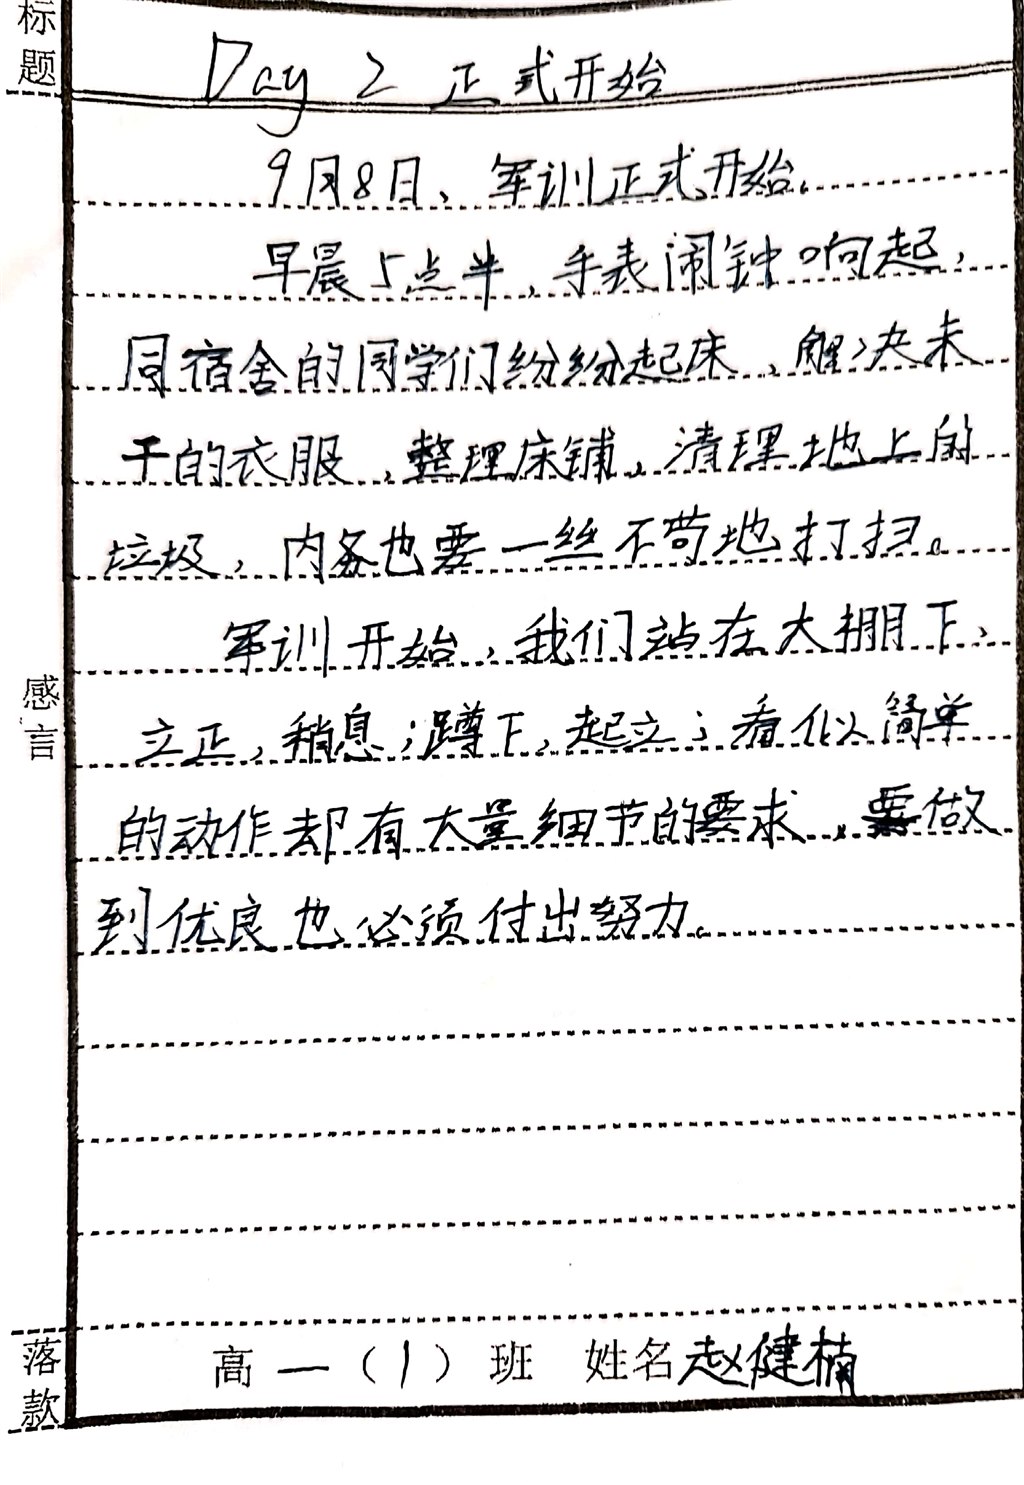 标题
Day 2 正式开始
9月8日、军训正式开始。
早晨5点半，手表闹钟响起，
同宿舍的同学们纷纷起床，解决未
干的衣服，整理床铺，清理地上的
垃圾，内务也要一丝不苟地打扫。
军训开始，我们站在大棚下，
感言
立正，稍息；蹲下，起立；看似简单
的动作却有大量细节的要求，要做
到优良也必须付出努力。
落款
高一（1）班 姓名赵健楠